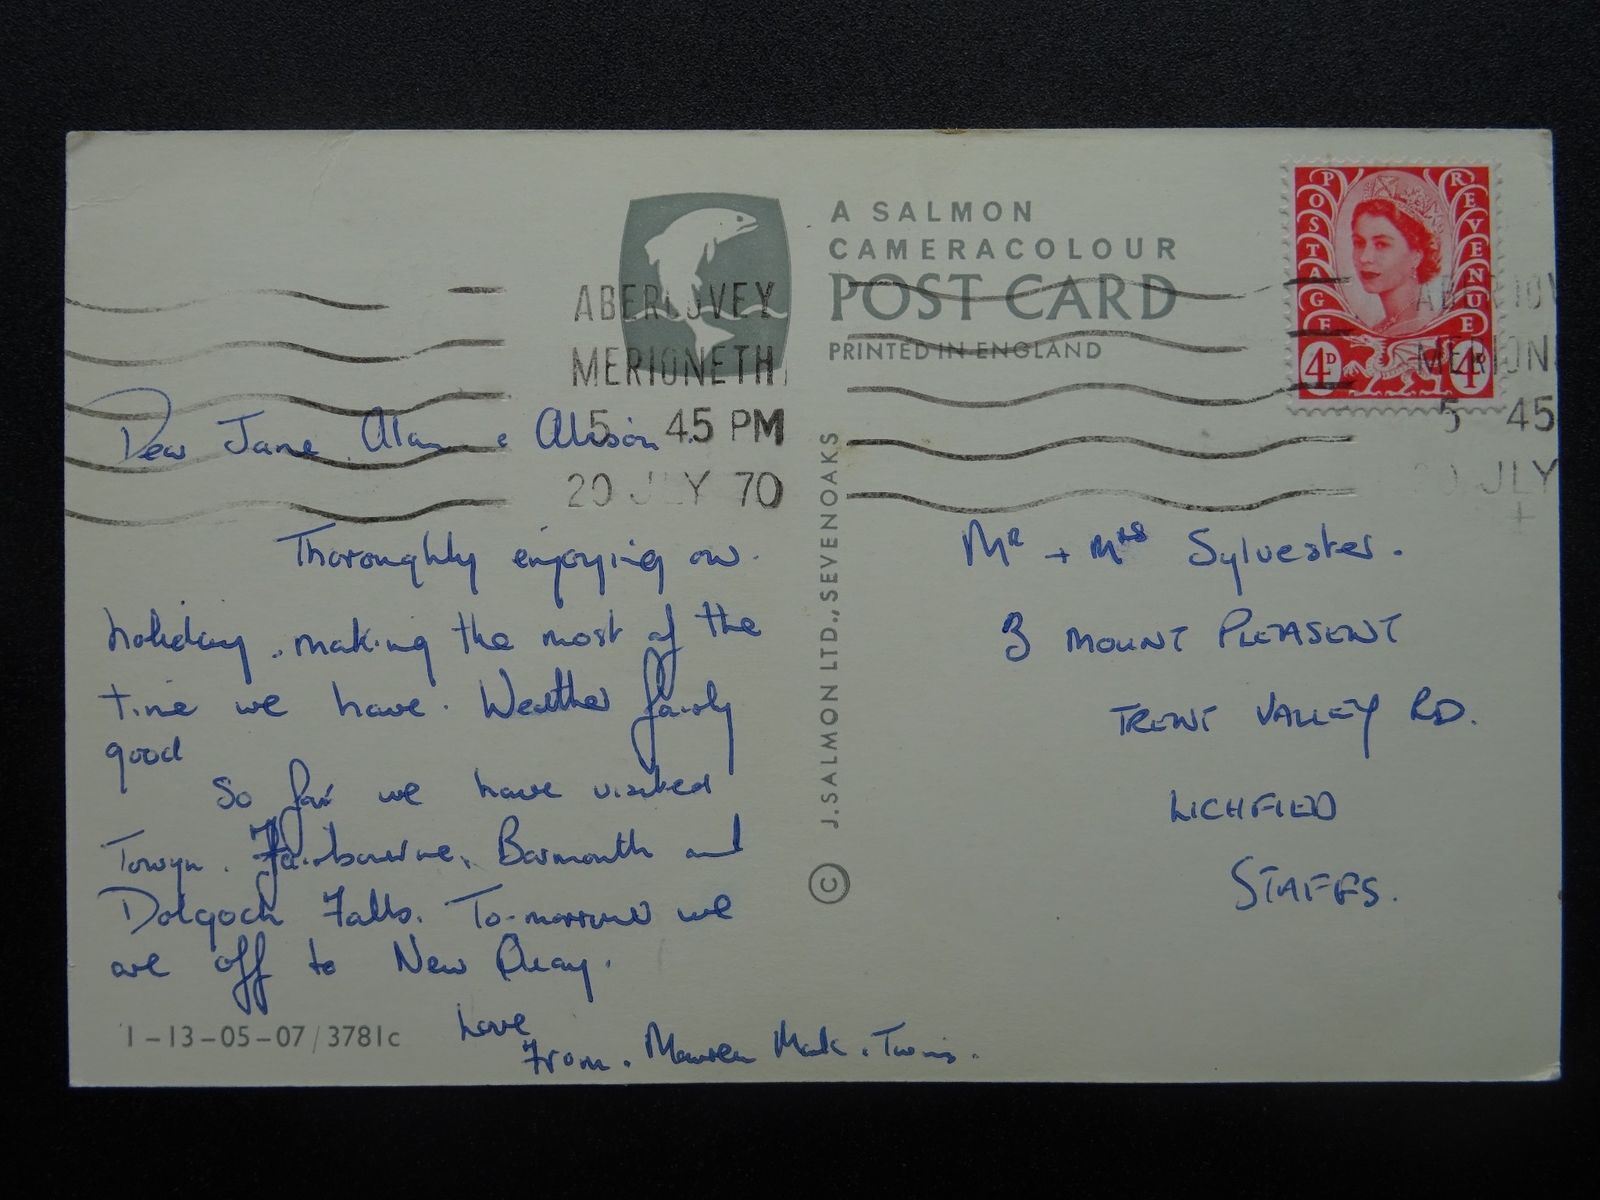 A SALMON
CAMERACOLOUR
POST CARD
PRINTED IN ENGLAND
POSTAGE REVENUE
4D 4D
ABERDOVEY
MERIONETH
5 45 PM
20 JLY 70
MERION
5 45
20 JLY
Dear Jane Alan & Alison.
Thoroughly enjoying our
holiday, making the most of the
time we have. Weather fairly
good
So far we have visited
Towyn. Fairbourne, Barmouth and
Dolgoch Falls. To-morrow we
are off to New Quay.
Love
From. Maureen Mark & Twins.
1-13-05-07/3781c
J. SALMON LTD., SEVENOAKS
©
MR + MRS Sylvester.
3 MOUNT PLEASENT
TRENT VALLEY RD.
LICHFIELD
STAFFS.